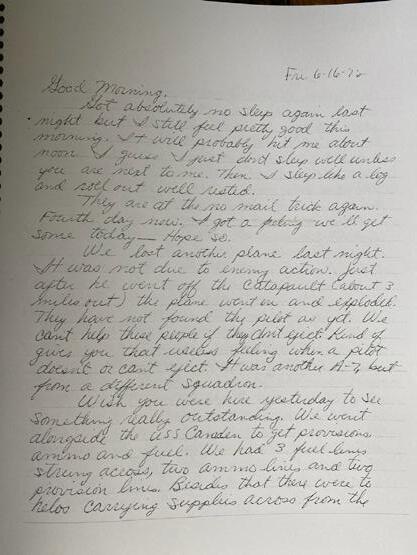 Fri 6-16-72
Good Morning,
Got absolutely no sleep again last
night but I still feel pretty good this
morning. It will probably hit me about
noon. I guess I just dont sleep well unless
you are next to me. Then I sleep like a log
and roll out well rested.
They are at the no mail trick again.
Fourth day now. I got a feeling we'll get
some today — Hope so.
We lost another plane last night.
It was not due to enemy action. Just
after he went off the catapault (about 3
miles out) the plane went in and exploded.
They have not found the pilot as yet. We
cant help these people if they dont eject. Kind of
gives you that useless feeling when a pilot
doesnt or cant eject. It was another A-7, but
from a different squadron.
Wish you were here yesterday to see
something really outstanding. We went
alongside the USS Camden to get provisions
ammo and fuel. We had 3 fuel lines
strung across, two ammo lines and two
provision lines. Besides that there were to
helos carrying supplies across from the